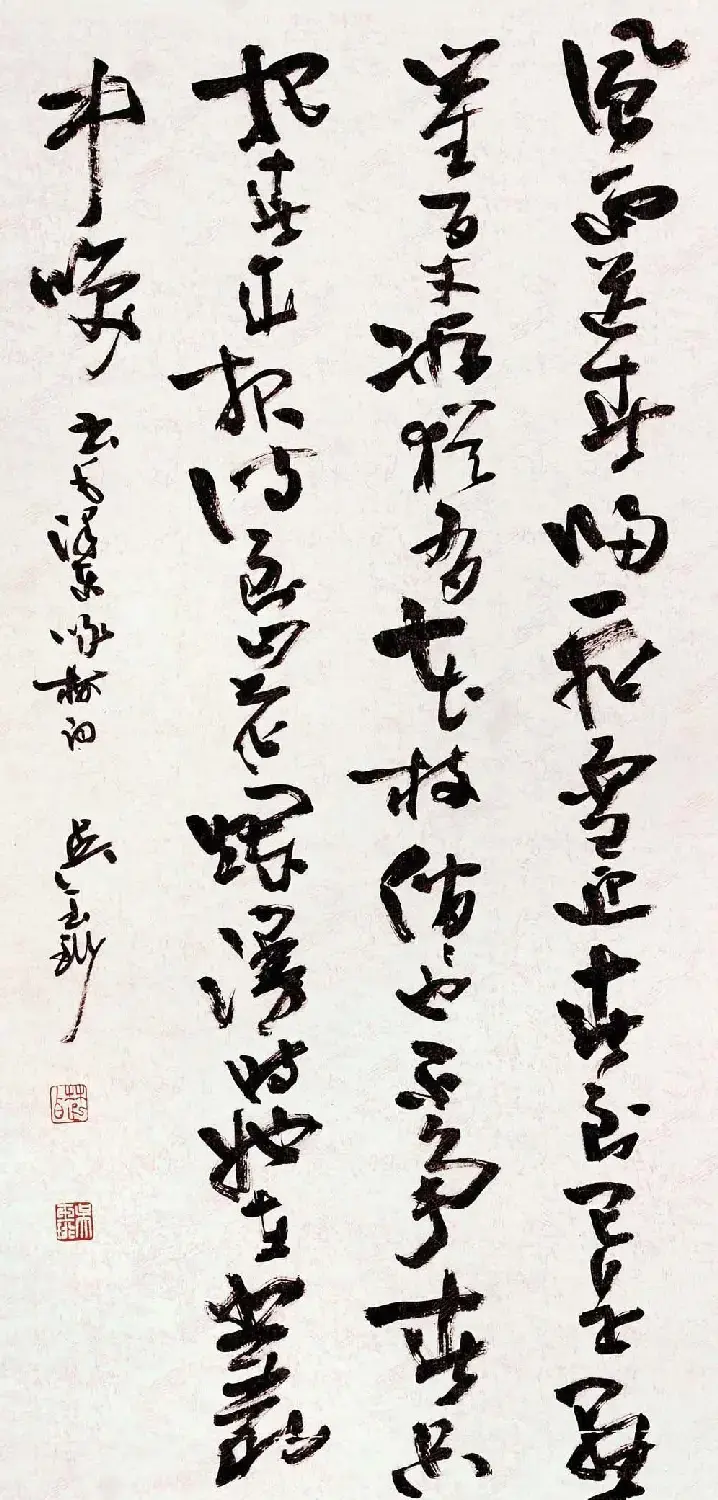 風雨送春歸飛雪迎春到已是懸
崖百丈冰猶有花枝俏〻也不爭春只
把春來報待到山花爛漫時她在叢
中咲 書毛澤東咏梅詞 吳